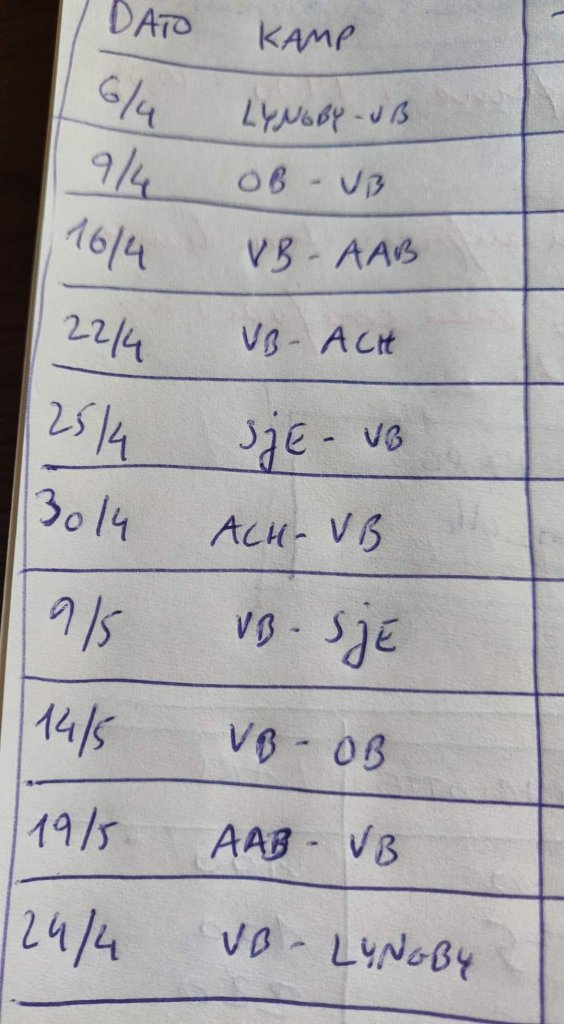 DATO KAMP
6/4 LYNGBY-VB
9/4 OB - VB
16/4 VB - AAB
22/4 VB - ACH
25/4 SjE - VB
30/4 ACH - VB
9/5 VB - SjE
14/5 VB - OB
19/5 AAB - VB
24/4 VB - LYNGBY